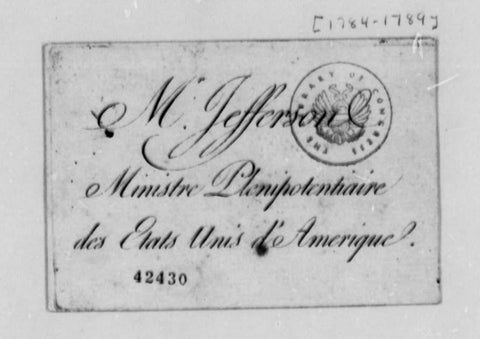 [1784-1789]
Mr. Jefferson
THE LIBRARY OF CONGRESS
Ministre Plenipotentiaire
des Etats Unis d'Amerique.
42430